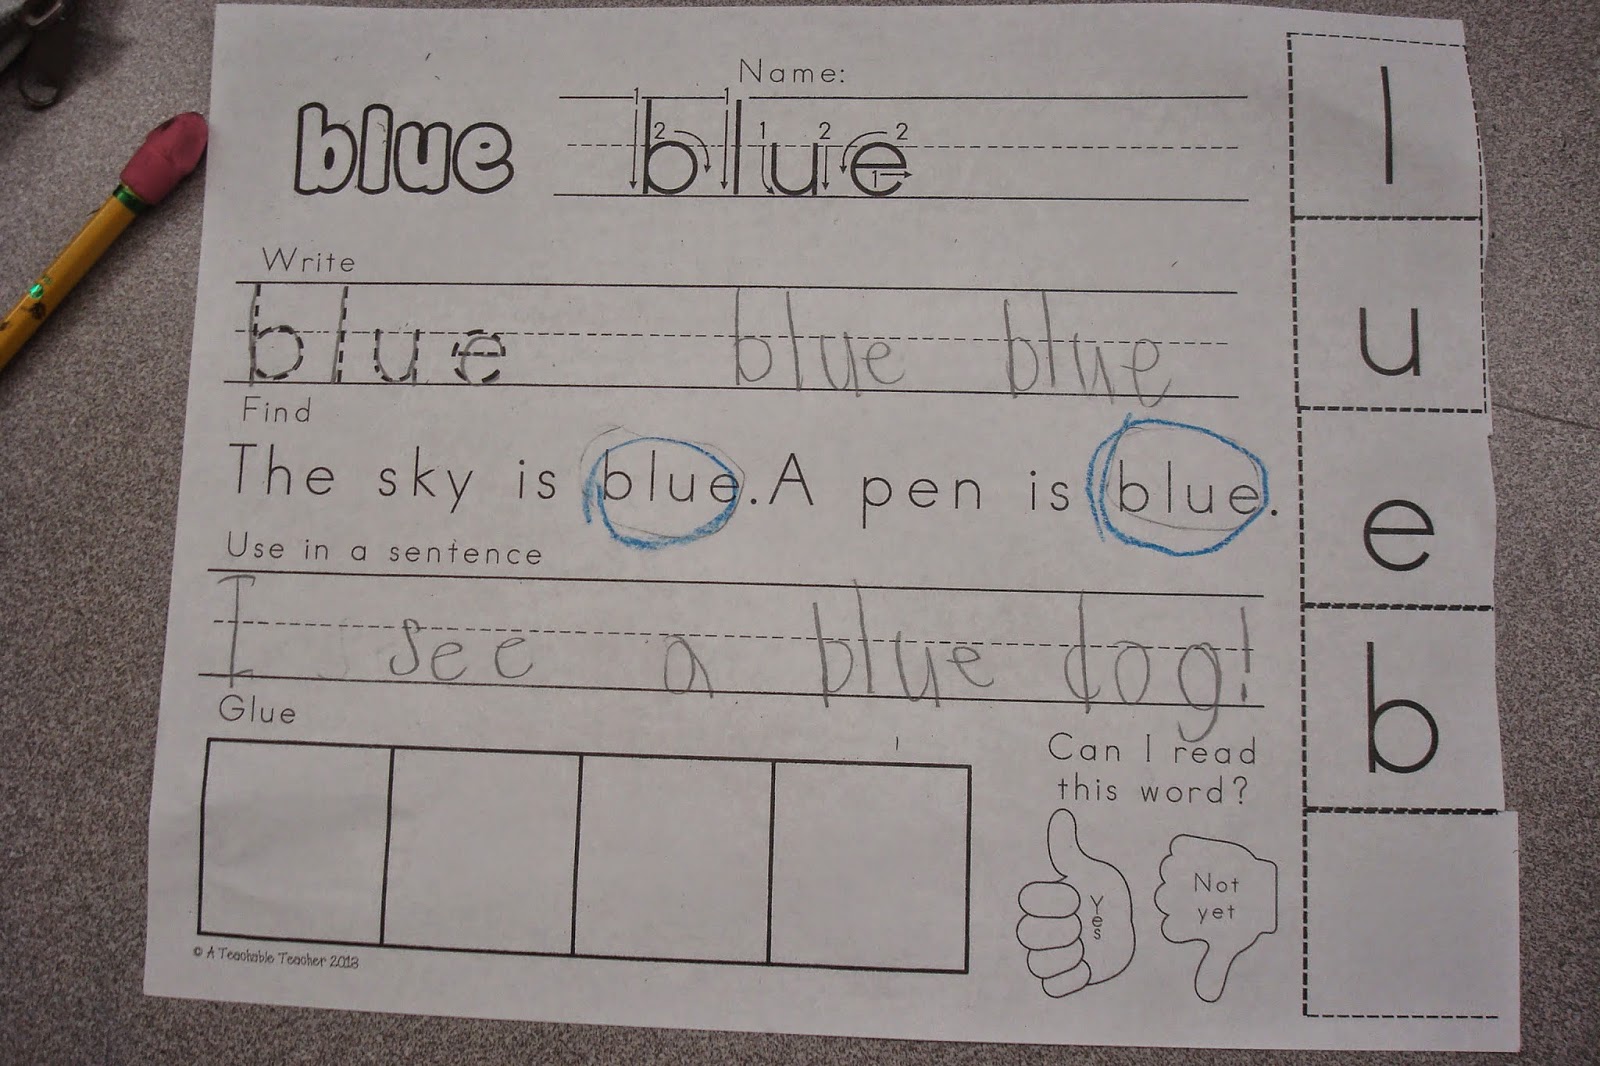 Name:
blue 1 2 1 b l 1 2 u 2 1 e
Write
blue blue blue
Find
The sky is blue. A pen is blue.
Use in a sentence
I see a blue dog!
Glue
Can I read
this word?
Yes
Not
yet
© A Teachable Teacher 2013
l
u
e
b